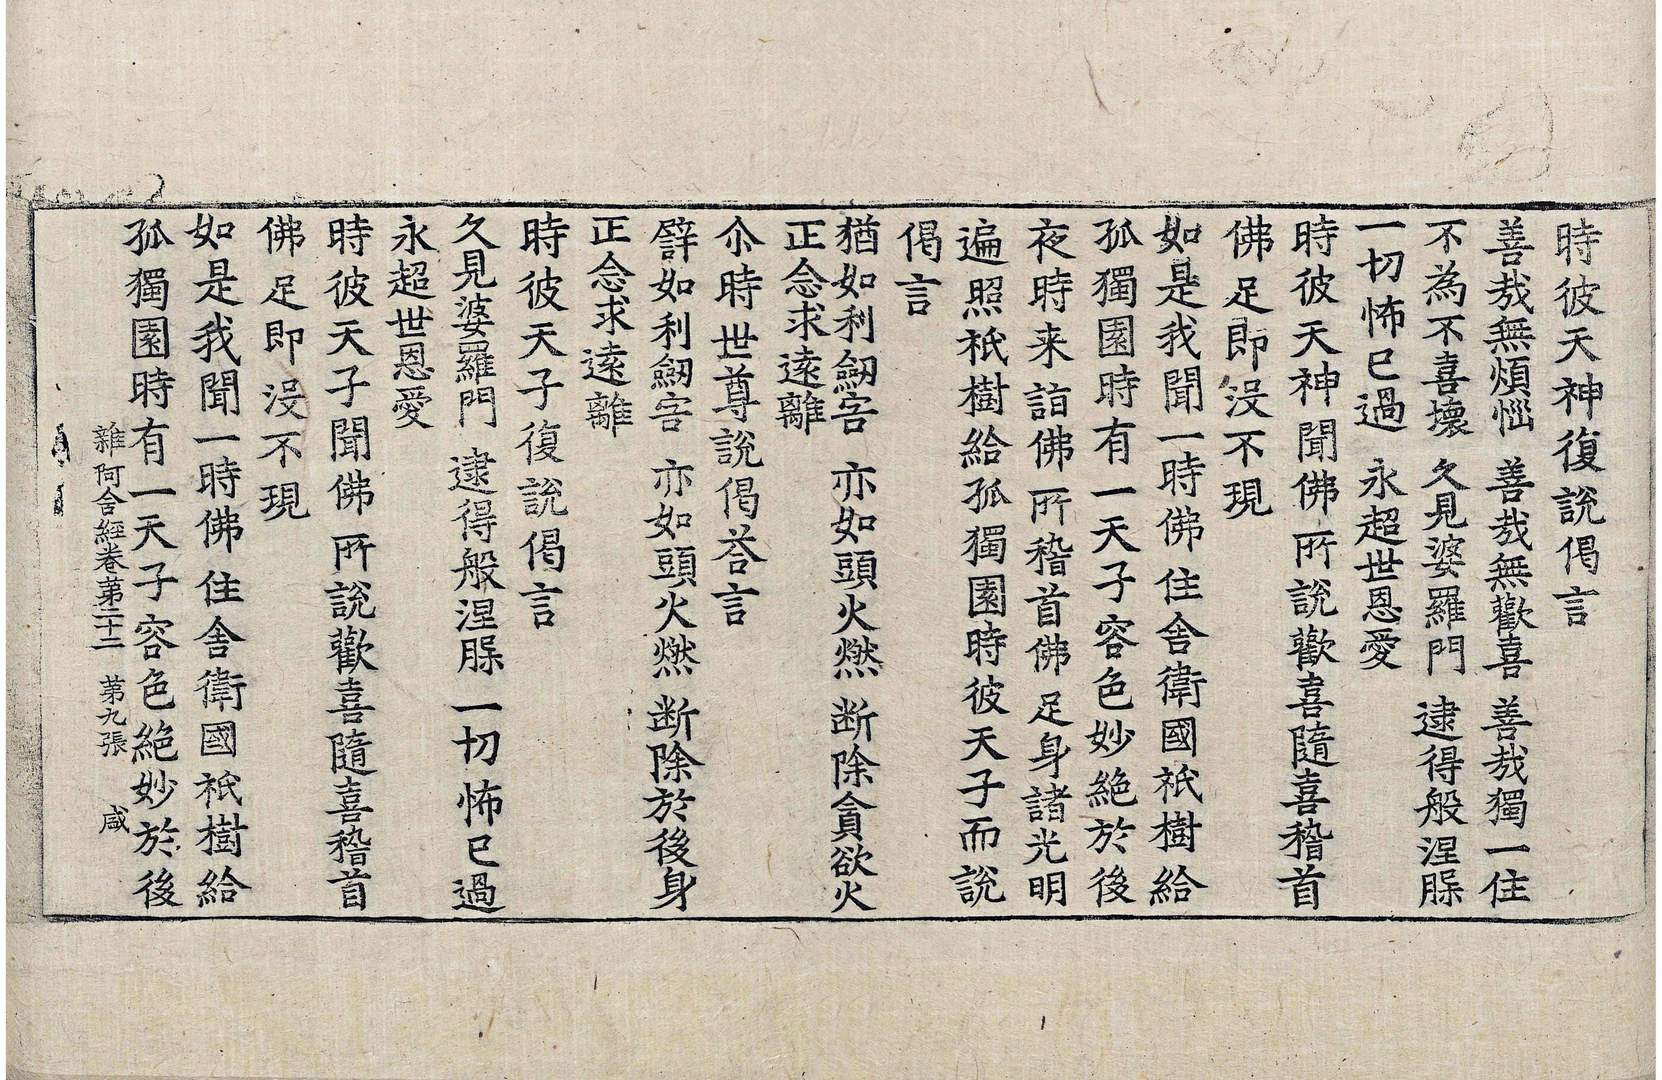 時彼天神復說偈言
善㢤無煩惱　善㢤無歡喜　善㢤獨一住
不為不喜壞　久見婆羅門　逮得般涅𣊬
一切怖已過　永超世恩愛
時彼天神聞佛所說歡喜隨喜稽首
佛足即沒不現
如是我聞一時佛住舍衛國祇樹給
孤獨園時有一天子容色妙絶於後
夜時来詣佛所稽首佛足身諸光明
遍照祇樹給孤獨園時彼天子而說
偈言
猶如利劒害　亦如頭火燃　断除貪欲火
正念求遠離
尒時世尊說偈荅言
譬如利劒害　亦如頭火燃　断除於後身
正念求遠離
時彼天子復說偈言
久見婆羅門　逮得般涅槃　一切怖已過
永超世恩愛
時彼天子聞佛所說歡喜隨喜稽首
佛足即沒不現
如是我聞一時佛住舍衛國祇樹給
孤獨園時有一天子容色絶妙於後
雜阿含經卷苐二十二　苐九張　咸